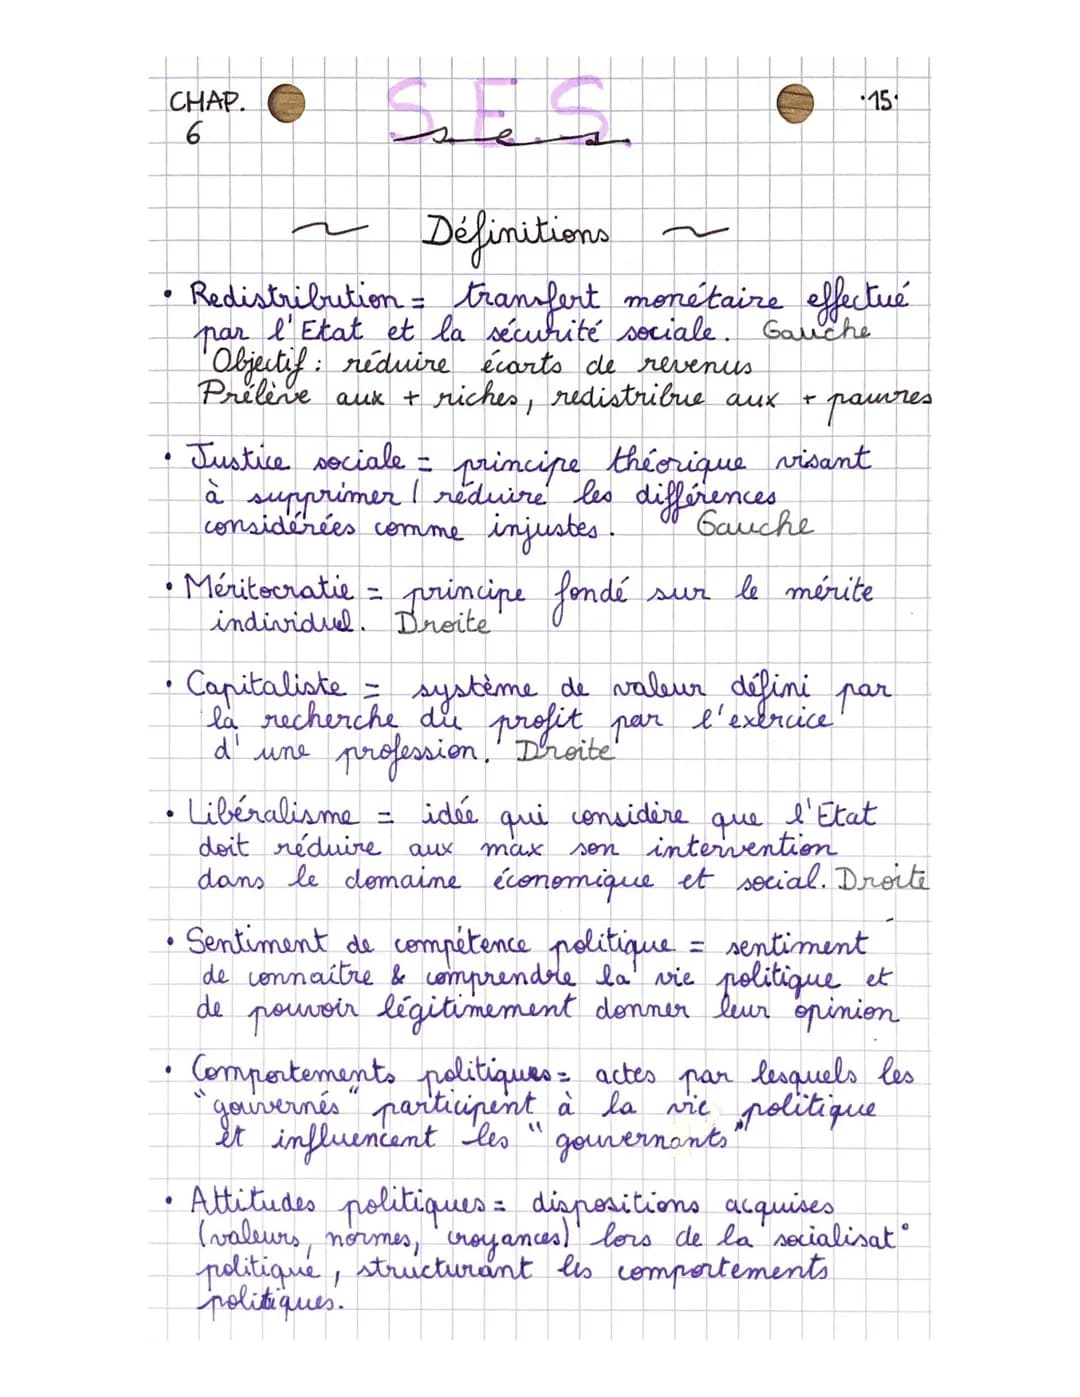 CHAP. 6
S.E.S.
ses
·15·
~ Définitions ~
• Redistribution = transfert monétaire effectué
par l'Etat et la sécurité sociale. Gauche
Objectif : réduire écarts de revenus
Prélève aux + riches, redistribue aux + pauvres
• Justice sociale = principe théorique visant
à supprimer / réduire les différences
considérées comme injustes. Gauche
• Méritocratie = principe fondé sur le mérite
individuel. Droite
• Capitaliste = système de valeur défini par
la recherche du profit par l'exercice
d'une profession. Droite
• Libéralisme = idée qui considère que l'Etat
doit réduire aux max son intervention
dans le domaine économique et social. Droite
• Sentiment de compétence politique = sentiment
de connaître & comprendre la vie politique et
de pouvoir légitimement donner leur opinion
• Comportements politiques = actes par lesquels les
"gouvernés" participent à la vie politique
et influencent les "gouvernants"
• Attitudes politiques = dispositions acquises
(valeurs, normes, croyances) lors de la socialisat°
politique, structurant les comportements
politiques.